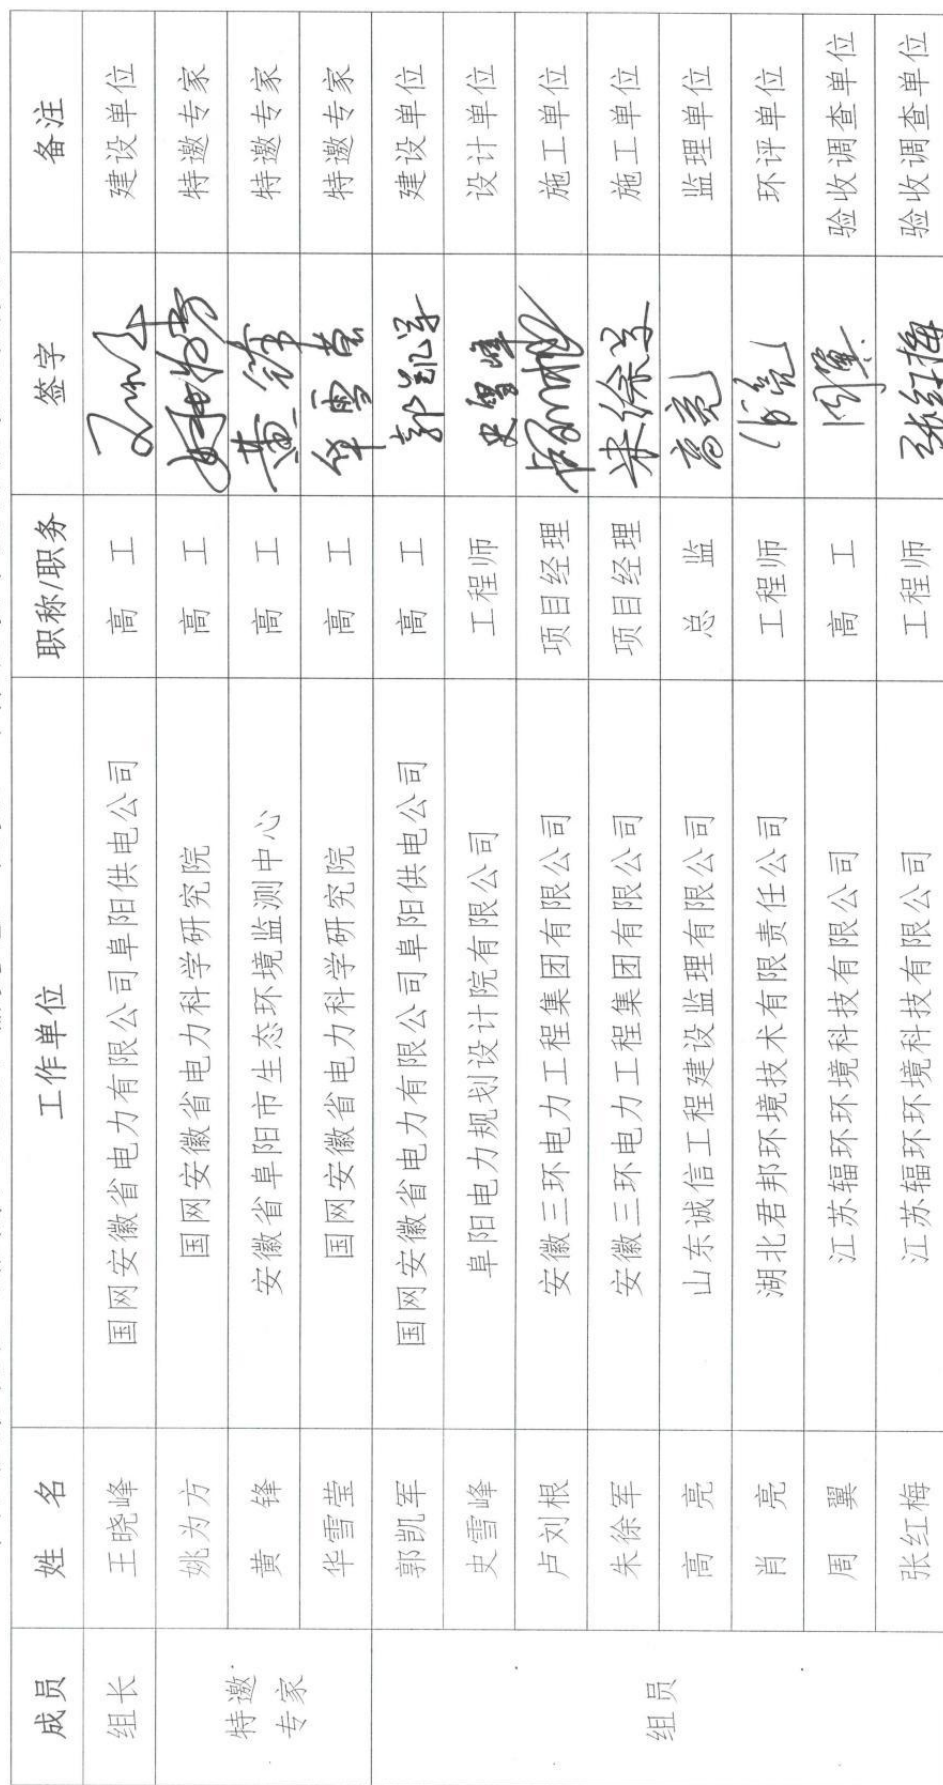 成员 姓 名 工作单位 职称/职务 签字 备注
组长 王晓峰 国网安徽省电力有限公司阜阳供电公司 高 工 建设单位
特邀专家 姚为方 国网安徽省电力科学研究院 高 工 姚为方 特邀专家
黄 锋 安徽省阜阳市生态环境监测中心 高 工 黄锋 特邀专家
华雪莹 国网安徽省电力科学研究院 高 工 华雪莹 特邀专家
组员 郭凯军 国网安徽省电力有限公司阜阳供电公司 高 工 郭凯军 建设单位
史雪峰 阜阳电力规划设计院有限公司 工程师 史雪峰 设计单位
卢刘根 安徽三环电力工程集团有限公司 项目经理 施工单位
朱徐军 安徽三环电力工程集团有限公司 项目经理 朱徐军 施工单位
高 亮 山东诚信工程建设监理有限公司 总 监 高亮 监理单位
肖 亮 湖北君邦环境技术有限责任公司 工程师 肖亮 环评单位
周 翼 江苏辐环环境科技有限公司 高 工 验收调查单位
张红梅 江苏辐环环境科技有限公司 工程师 张红梅 验收调查单位